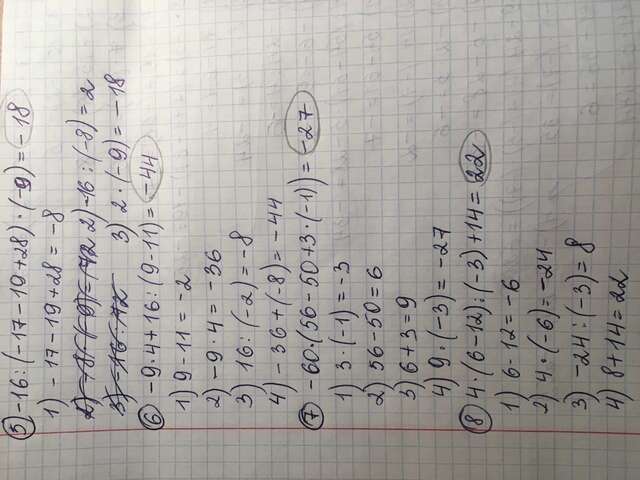 5) -16 : (-17-19+28) · (-9) = -18
1) -17-19+28 = -8
2) -8 · (-9) = 72 2) -16 : (-8) = 2
3) -16 : 72 3) 2 · (-9) = -18
6) -9·4+16 : (9-11) = -44
1) 9-11 = -2
2) -9 · 4 = -36
3) 16 : (-2) = -8
4) -36+(-8) = -44
7) -60·(56-50+3·(-1)) = -27
1) 3·(-1) = -3
2) 56-50 = 6
3) 6+3 = 9
4) 9·(-3) = -27
8) 4·(6-12) : (-3)+14 = 22
1) 6-12 = -6
2) 4·(-6) = -24
3) -24 : (-3) = 8
4) 8+14 = 22